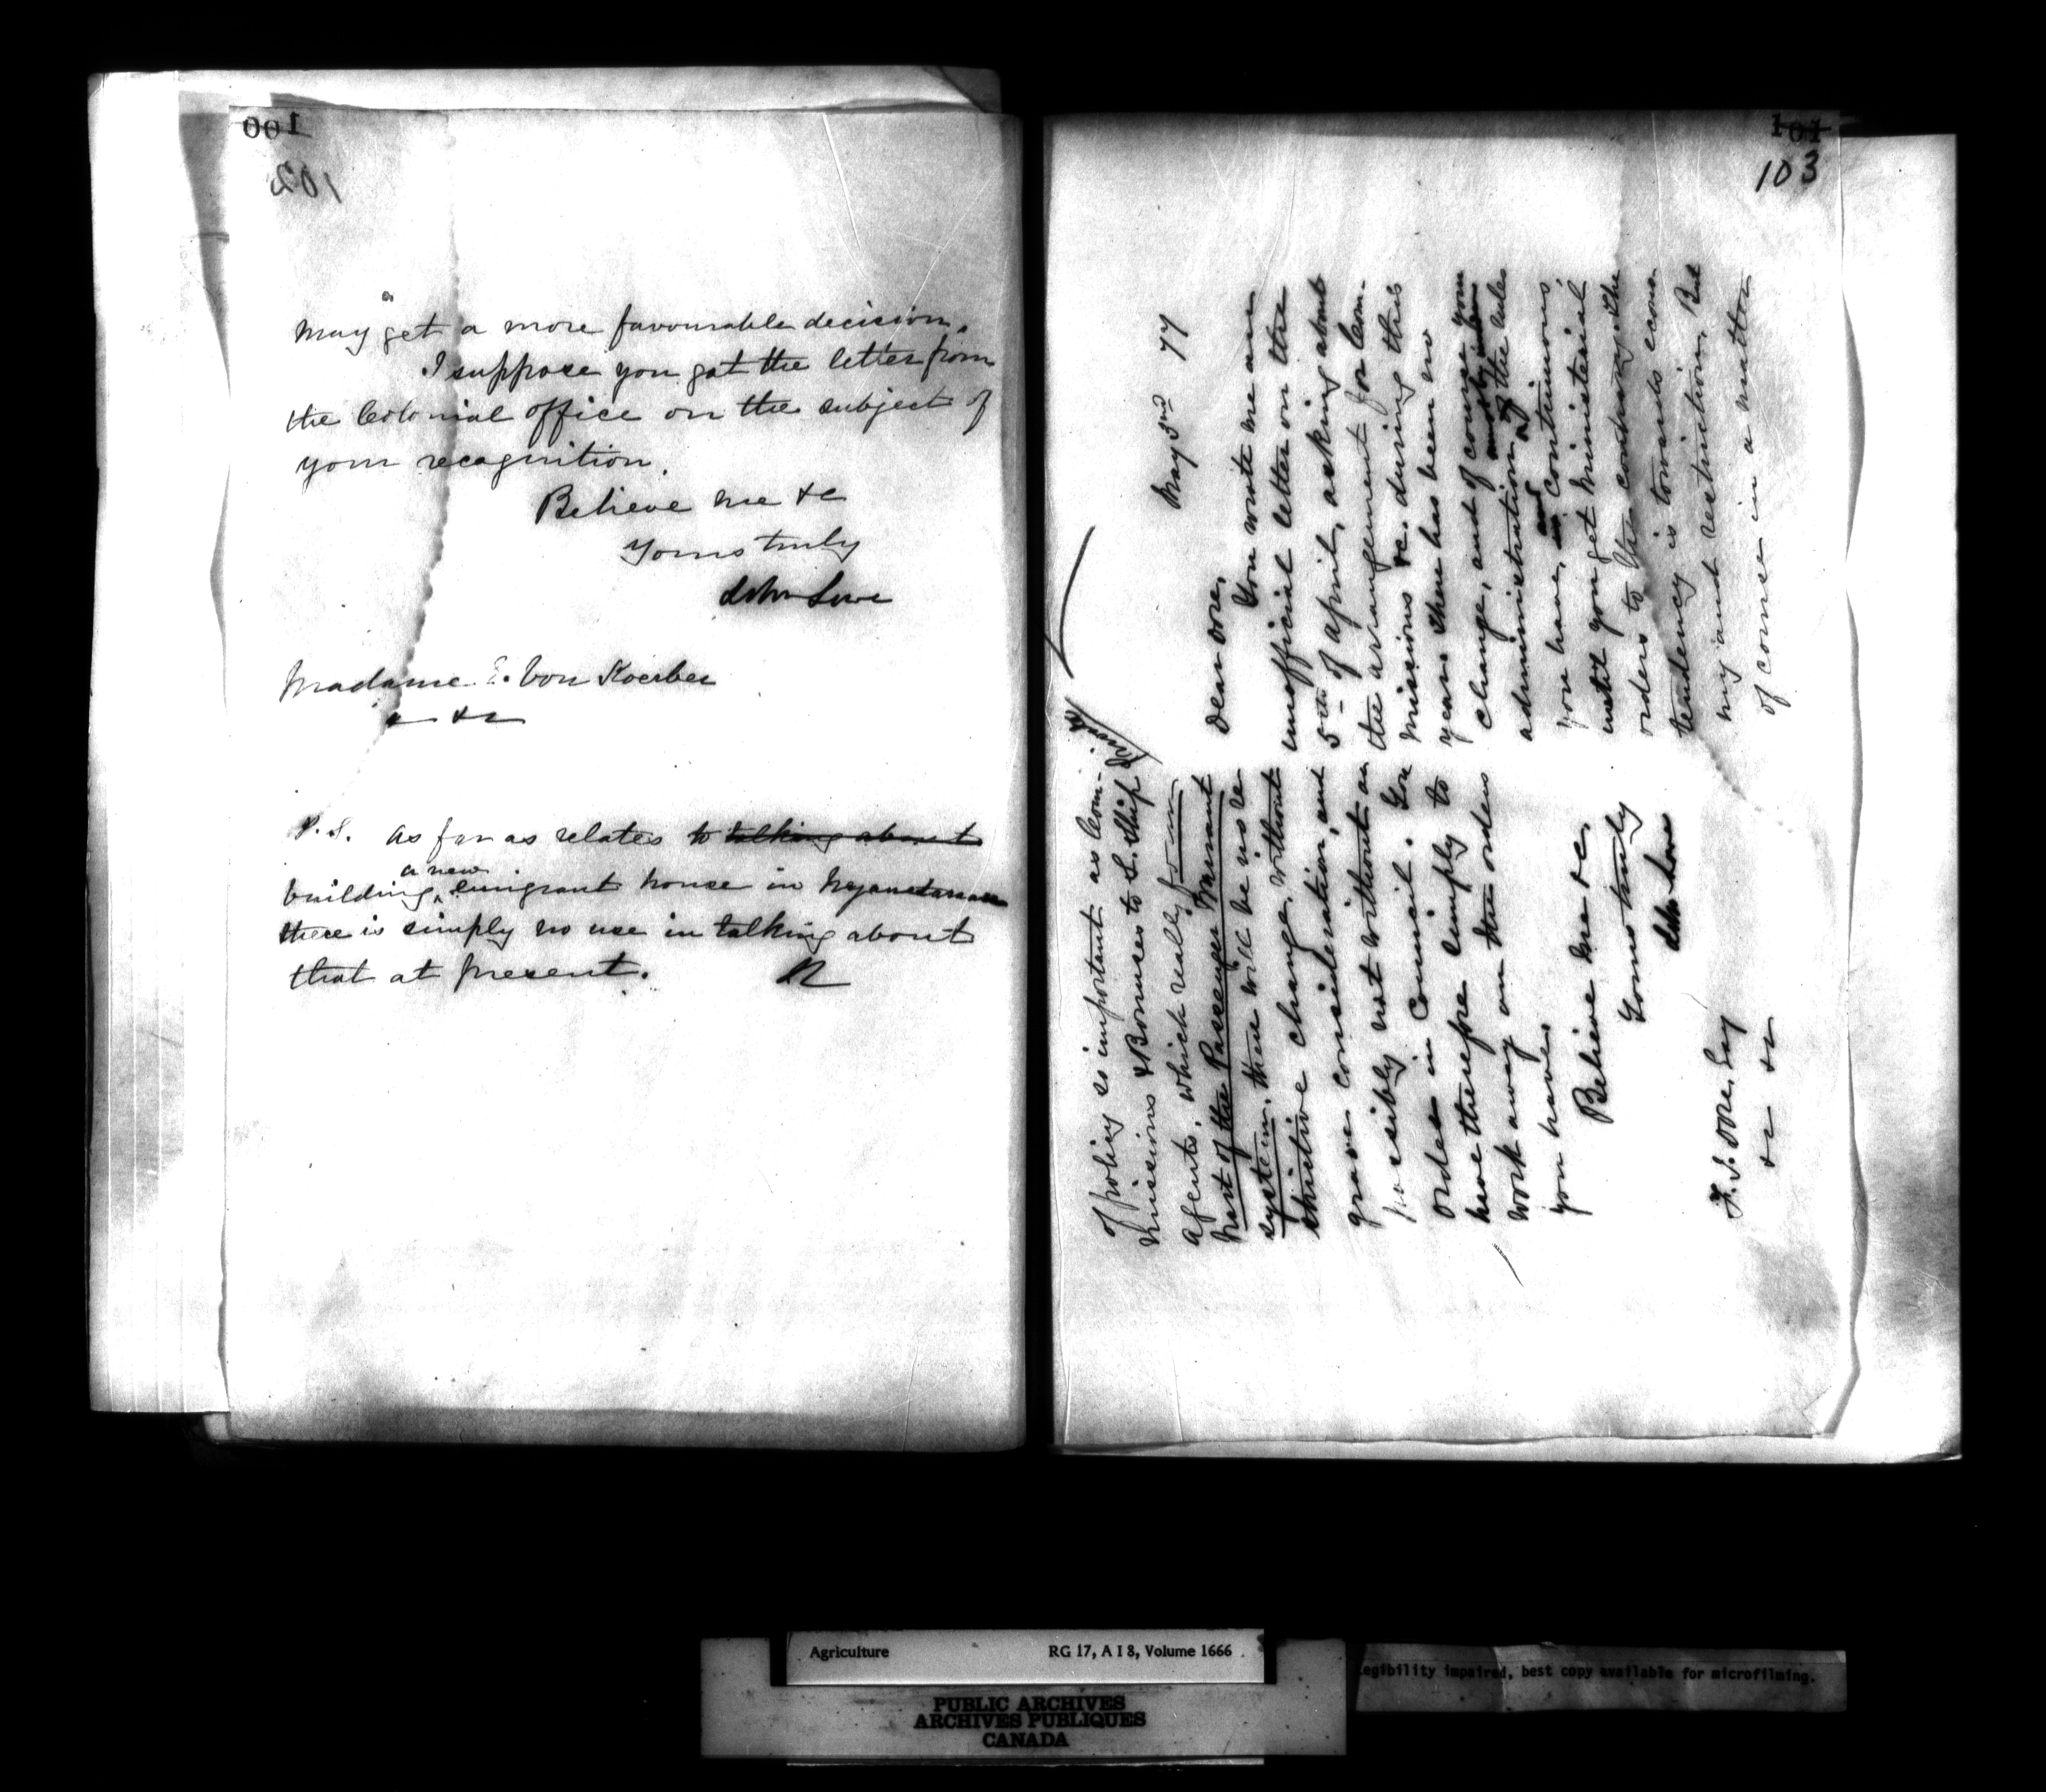 100
102
may get a more favourable decision.
I suppose you got the letter from
the Colonial office on the subject of
your recognition.
Believe me &c
Yours truly
John Lowe
Madame E. Von Koerber
&c &c
P.S. As far as relates to talking about
building a new emigrant house in
there is simply no use in talking about
that at present. JL
101
103
May 3rd 77
Dear Dore,
You write me an
unofficial letter on the
5th of April, asking about
the arrangement for Com-
missions &c. during this
year. There has been no
change, and of course your
administration of the rules
you have, is continuous,
until you get Ministerial
orders to the contrary. The
tendency is towards econo-
my and restriction. But
of course in a matter
of policy so important as Com-
missions & Bonuses to S. Ship
agents, which really form
part of the Passenger Warrant
system, there will be no re
strictive change, without
grave consideration, and
possibly not without an
order in Council. You
have therefore simply to
work away on the orders
you have.
Believe me &c.
Yours truly
John Lowe
Dore, Esq
&c &c
Agriculture RG 17, A I 8, Volume 1666
PUBLIC ARCHIVES
ARCHIVES PUBLIQUES
CANADA
Legibility impaired, best copy available for microfilming.